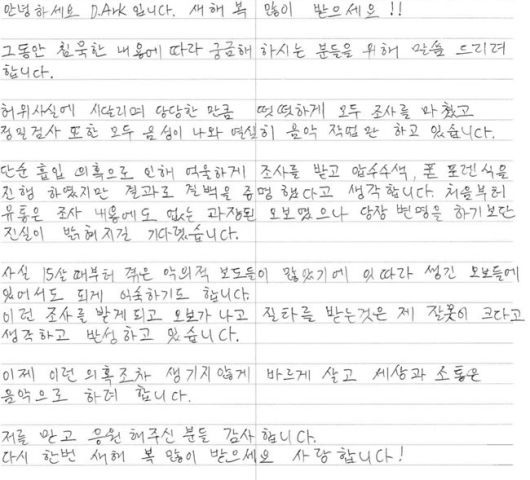 안녕하세요 D.Ark 입니다. 새해 복 많이 받으세요 !!
그동안 침묵한 내용에 따라 궁금해 하시는 분들을 위해 말씀 드리려
합니다.
허위사실에 시달리며 당당한 만큼 떳떳하게 모두 조사를 마쳤고
정밀검사 또한 모두 음성이 나와 열실히 음악 작업만 하고 있습니다.
단순 흡입 의혹으로 인해 억울하게 조사를 받고 압수수색, 폰 포렌식을
진행 하였지만 결과로 결백을 증명 했다고 생각합니다. 처음부터
유통은 조사 내용에도 없는 과장된 오보였으나 당장 변명을 하기보단
진실이 밝혀지길 기다렸습니다.
사실 15살 때부터 겪은 악의적 보도들이 많았기에 잇따라 생긴 오보들에
있어서도 되게 억울하기도 합니다.
이런 조사를 받게 되고 오보가 나고 질타를 받는것은 제 잘못이 크다고
생각하고 반성하고 있습니다.
이제 이런 의혹조차 생기지않게 바르게 살고 세상과 소통은
음악으로 하려 합니다.
저를 믿고 응원 해주신 분들 감사합니다.
다시 한번 새해 복 많이 받으세요 사랑합니다!